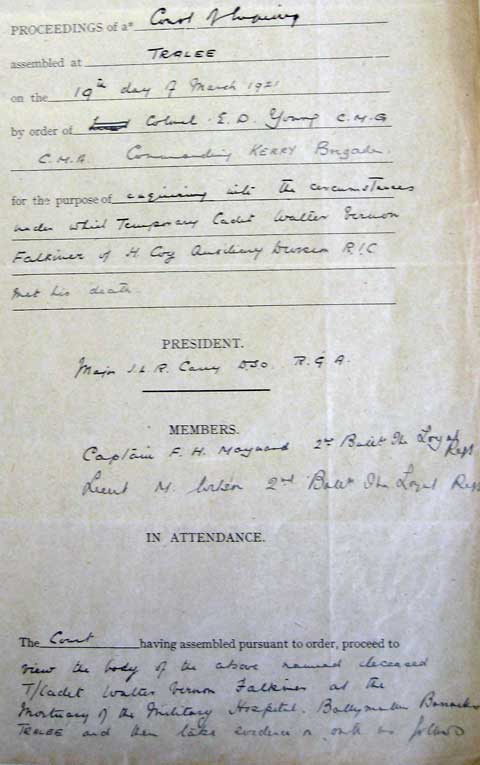 PROCEEDINGS of a* Court of Inquiry
assembled at TRALEE
on the 19th day of March 1921
by order of Colonel E. D. Young C.M.G
C.M.A. Commanding KERRY Brigade
for the purpose of enquiring into the circumstances
under which Temporary Cadet Walter Vernon
Falkiner of H Coy Auxiliary Division R.I.C
met his death.
PRESIDENT.
Major J.L.R. Carey DSO. R.G.A.
MEMBERS.
Captain F. H. Maynard 2nd Battn The Loyal Regt
Lieut M. 2nd Battn The Loyal Regt
IN ATTENDANCE.
The Court having assembled pursuant to order, proceed to
view the body of the above named deceased
T/Cadet Walter Vernon Falkiner at the
Mortuary of the Military Hospital. Ballymullen Barracks
TRALEE and then take evidence on oath as follows